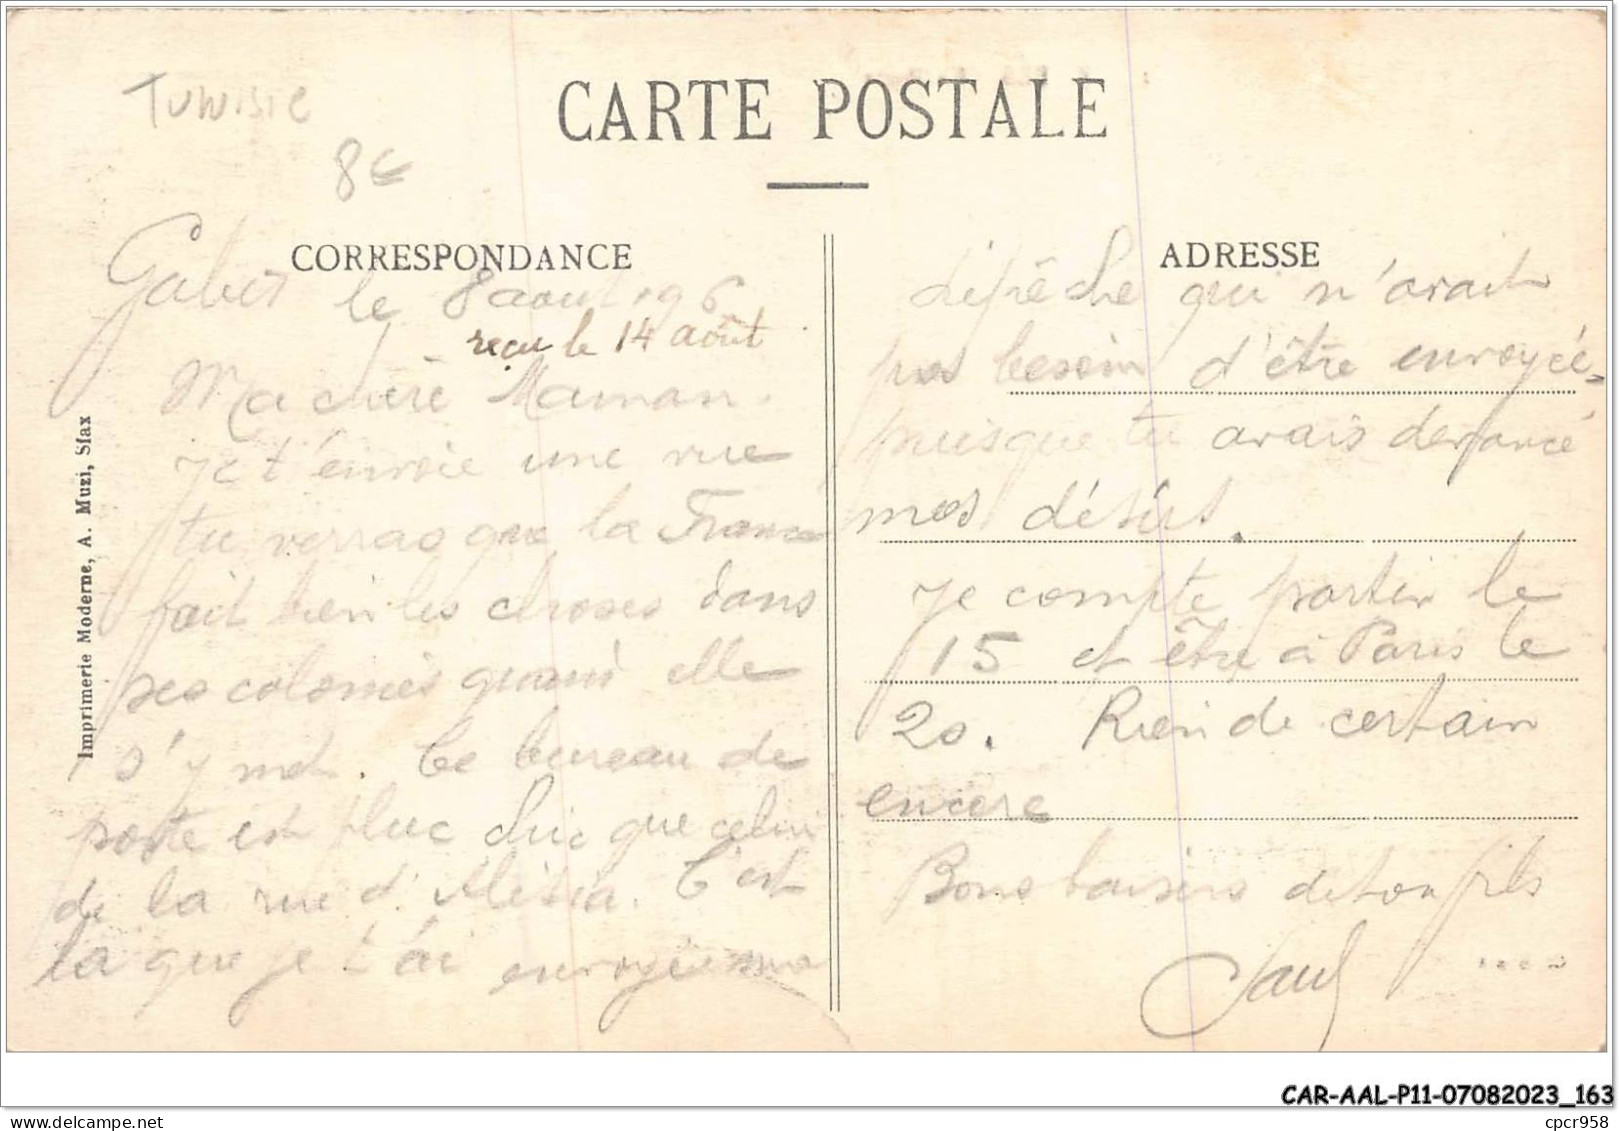 Tunisie
8€
CARTE POSTALE
CORRESPONDANCE
ADRESSE
Gabès le 8 aout
reçu le 14 août
Ma chère Maman.
je t'envoie une vue
tu verras que la France
fait bien les choses dans
ses colonies quand elle
s'y met. Ce bureau de
poste est plus chic que celui
de la rue d'Alésia. C'est
la que je t'ai envoyé ma
dépêche qui n'avait
pas besoin d'être envoyée,
puisque tu avais devancé
mes désirs.
Je compte partir le
15 et être à Paris le
20. Rien de certain
encore
Bons baisers de ton fils
Paul
Imprimerie Moderne, A. Muzi, Sfax
CAR-AAL-P11-07082023_163
cpcr958